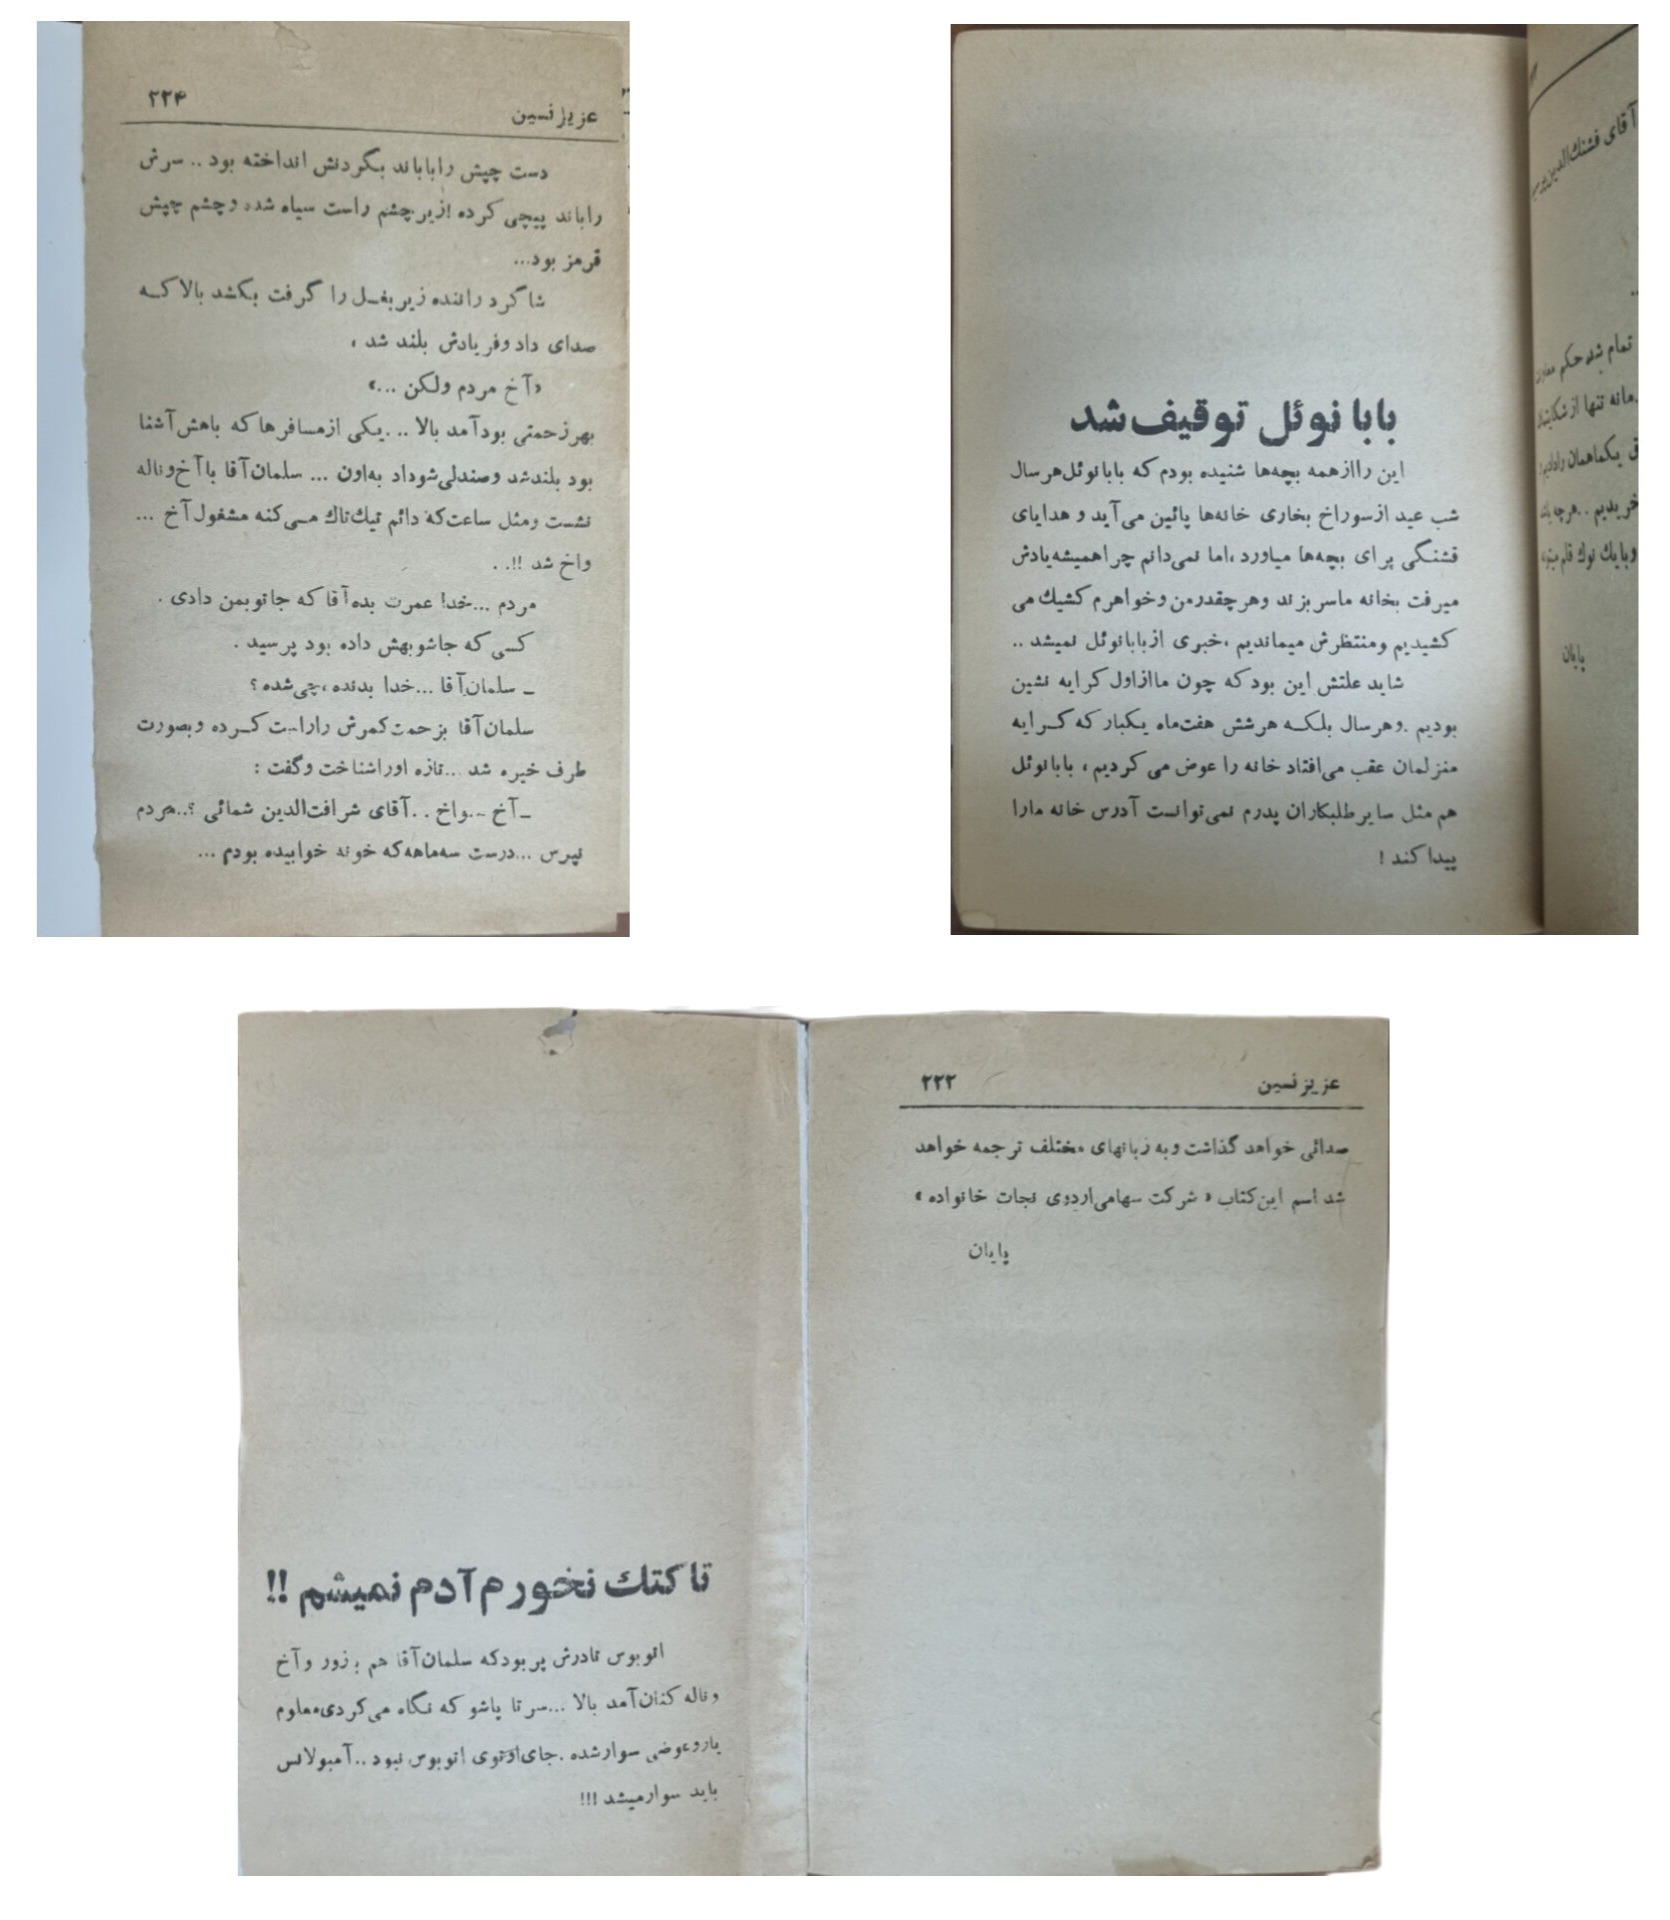 عزیز نسین ۲۲۴
دست چپش را باباند بگردنش انداخته بود .. سرش
را باند پیچی کرده ! زیر چشم راست سیاه شده و چشم چپش
قرمز بود...
شاگرد راننده زیر بغل را گرفت بکشد بالا که
صدای داد و فریادش بلند شد ،
«آخ مردم ولکن ...»
بهر زحمتی بود آمد بالا ... یکی از مسافرها که باهش آشنا
بود بلند شد و صندلی شو داد به اون ... سلمان آقا با آخ و ناله
نشست و مثل ساعت که دائم تیك تاك می کنه مشغول آخ ...
واخ شد !!. .
مردم ... خدا عمرت بده آقا که جا تو بمن دادی .
کسی که جاشو بهش داده بود پرسید .
ـ سلمان آقا ... خدا بد نده ، چی شده ؟
سلمان آقا بزحمت کمرش را راست کرده و بصورت
طرف خیره شد ... تازه او را شناخت و گفت :
ـ آخ ... واخ . . آقای شرافت الدین شمائی ؟.. مردم
نپرس ... درست سه ماهه که خونه خوابیده بودم ...
بابا نوئل توقیف شد
این را از همه بچه‌ها شنیده بودم که بابا نوئل هر سال
شب عید از سوراخ بخاری خانه‌ها پائین می‌آید و هدایای
قشنگی برای بچه‌ها میاورد ، اما نمی‌دانم چرا همیشه یادش
میرفت بخانه ما سر بزند و هر چقدر من و خواهرم کشیك می
کشیدیم و منتظرش میماندیم ، خبری از بابا نوئل نمیشد ..
شاید علتش این بود که چون ما از اول کرایه نشین
بودیم . و هر سال بلکه هر شش هفت ماه یکبار که کرایه
منزلمان عقب می‌افتاد خانه را عوض می کردیم ، بابا نوئل
هم مثل سایر طلبکاران پدرم نمی‌توانست آدرس خانه ما را
پیدا کند !
آقای فشنك الدین
تمام شد حکم
مانه تنها از
یکماهمان
خریدیم .. هر چه
و با یك نوك قلم
پایان
عزیز نسین ۲۲۲
صدائی خواهد گذاشت و به زبانهای مختلف ترجمه خواهد
شد اسم این کتاب « شرکت سهامی اردوی نجات خانواده »
پایان
تا کتك نخورم آدم نمیشم !!
اتوبوس تا درش پر بود که سلمان آقا هم بزور و آخ
و ناله کنان آمد بالا ... سر تا پاشو که نگاه می کردی معلوم
یارو عوضی سوار شده . جای او توی اتوبوس نبود .. آمبولانس
باید سوار میشد !!!